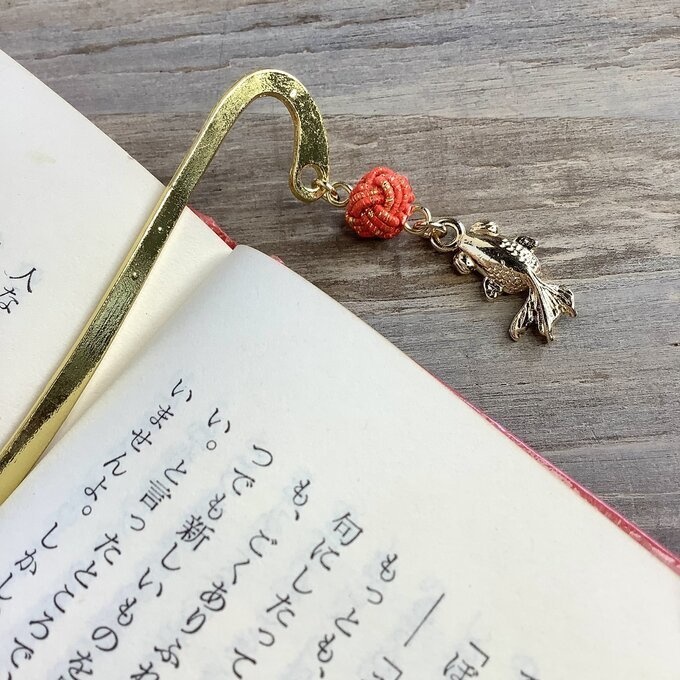 「ぼ
―「
もっとも、
句にしたって
も、ごくありふれ
つでも新しいものを
い。と言ったところで、
いませんよ。しかし
人な